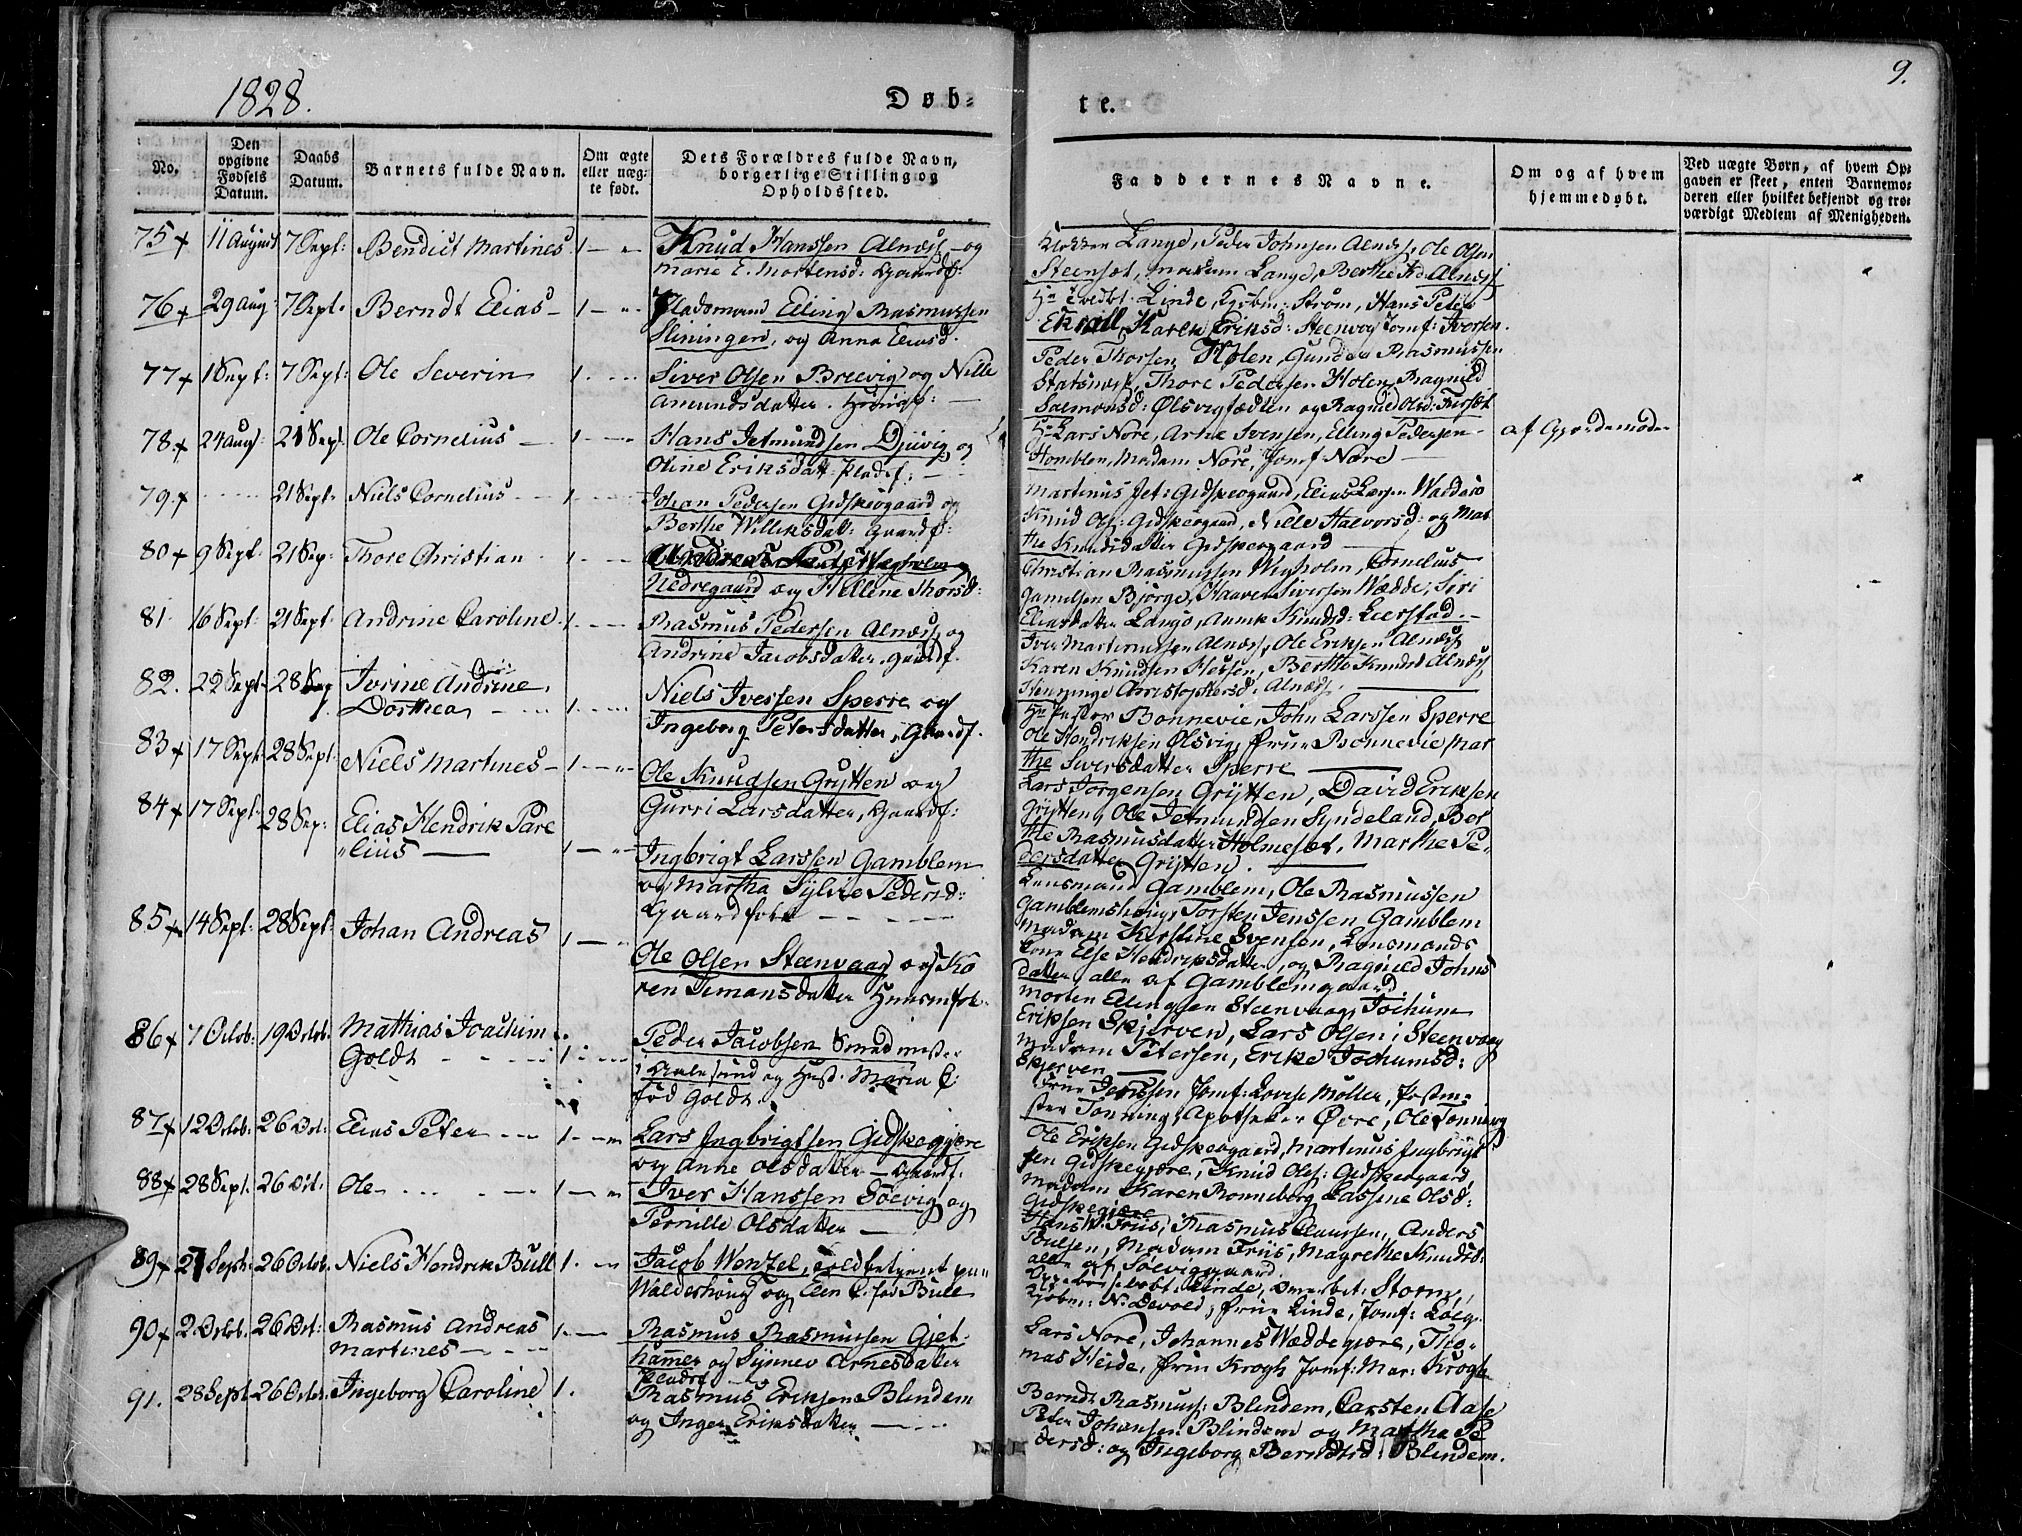 1828.
Døb-
te.
9.
No.
Den opgivne Fødsels Datum.
Daabs Datum.
Barnets fulde Navn.
Om ægte eller uæg-te født.
Dets Forældres fulde Navn, borgerlige Stilling og Opholdssted.
Faddernes Navne.
Om og af hvem hjemmedøbt.
Ved uægte Børn, af hvem Op-gaven er skeet, enten Barnemo-deren eller hvilket bekjendt og tro-værdigt Medlem af Menigheden.
75 + 11 August 7 Sept: Bendict Martines 1 — Knud Hanssen Alnæs — og
Marie E. Mortensd: Gaardf:
Lange, Peder Johnsen Alnæs, Ole Olsen
Steensæt, Madam Lange, Berthe Alnæs
76 + 29 Aug 7 Sept. Berndt Elias — 1 — Pladsmand Elling Rasmussen
Sliningen, og Anna Eliasd.
Linde, Strøm, Hans Peter
Karen Eriksd: Steenvog Jomf: Iversen.
77 + 1 Sept: 7 Sept: Ole Severin 1. Siver Olsen Breevig og Nille
Amundsdatter. Huusf: —
Peder Thorsen Holen, Gunder Rasmussen
Thore Pedersen Holen, Ragnild
Salmonsd: Ølsvig og Ragned Olsd:
78 + 24 Aug: 21 Sept. Ole Cornelius — 1. Hans Jetmundsen Djuvig og
Oline Eriksdatt: Pladsf: —
Hr Lars Nore, Arne Svensen, Elling Pedersen
Hamblen, Madam Nore, Jomf Nore —
af Gjordemoder
79. + 21 Sept. Niels Cornelius 1. Johan Pedersen Gidskeogaard og
Berthe Williksdatt: Gaardf:
Martinus Jet: Gidskeogaard, Elias Larsen
Knud Ols: Gidskeogaard, Nille Halvorsd: og Mar
the Knudsdatter Gidskeogaard —
80 + 9 Sept. 21 Sep. Thore Christian 1.
Nedregaard og Hellene Thorsd:
Christian Rasmussen Wegholm, Cornelius
Bjørge, Haaver Siversen Wædde, Siri
Eliasdatter Langø, Anne Knudsd:
81. 16 Sept: 21 Sept. Andrine Caroline 1. Rasmus Pedersen Alnæs og
Andrine Jacobsdatter, Gaardf.
Iver Martinussen Alnæs, Ole Eriksen Alnæs
Karen Knudsen Flessen, Berthe Knudsd Alnæs,
Henninge Christophersd: Alnæs. —
82. 22 Sept. 28 Sep Ivrine Andrine,
Dorthea 1. Niels Iversen Sperre og
Ingeborg Petersdatter, Gaardf.
Hr Pastor Bonnevie, John Larssen Sperre
Ole Hendriksen Ølsvig, Frue Bonnevie, Mar
the Siversdatter Sperre —
83 + 17 Sept 28 Sept: Niels Martines — 1. Ole Knudsen Grytten og
Gurri Larsdatter, Gaardf:
Lars Jorgensen Grytten, David Eriksen
Grytten, Ole Jetmundsen Syndeland, Ber
the Rasmusdatter Holmeset, Marthe Pe-
dersdatter Grytten. —
84 + 17 Sept. 28 Sep: Elias Hendrik Pare
"lius — 1 — Ingbrigt Larssen Gamblem
og Martha Sylvie Pedersd:
Gaardfolk
Lensmand Gamblem, Ole Rasmussen
Gamblemshoug, Torsten Jenssen Gamblem
Madam Kirstine Svensen, Lensmands
kone Else Hendriksdatter, og Ragnild Johns
datter, alle af Gamblemgaard
85 + 14 Sept. 28 Sept: Johan Andreas 1 — Ole Olsen Steenvaag og Ka
ren Simonsdatter Huusmfok.
Morten Elingsen Steenvaag, Jochum
Eriksen Skjerven, Lars Olsen i Steenvaag
Madam Petersen, Erike Jochumsd:
Skjerven —
86 + 7 Octob: 19 Octob. Matthias Joachim
Goldt 1 Peder Jacobsen Smedmester
i Aalesund og Hust. Maria C.
fød Goldt.
Frue Jenssen Jomf: Lovise Møller, Postme-
ster Tønning, Apotheker Øvre, Ole Tønning
87 + 12 Octob. 26 Oct: Elias Peter 1. Lars Ingbrigtsen Gidskegjære
og Anne Olsdatter — Gaardf.
Ole Eriksen Gidskeogaard, Martinus Ingbrigt
sen Gidskegjære, Knud Ols: Gidskeogaard,
Madam Karen Ronneberg Lassine Olsd:
Gidskegjære
88 + 28 Sept. 26 Oct. Ole 1 — Iver Hanssen Søevig og
Pernille Olsdatter —
Hans W. Friis, Rasmus Claussen, Anders
Poulsen, Madam Friis, Magrethe Knudsd:
alle af Søeviggaard
89 + 27 Septb. 26 Octob. Niels Hendrik Bull 1. Jacob Wentzel, Toldbetjent paa
Walderhoug og Elen C. fød Bull
Linde, Storm,
Kjøbm: N. Devold, Frue Linde, Jomf:
90 + 2. Octob. 26 Oct: Rasmus Andreas
Martines 1. Rasmus Rasmussen Gjet
hammer og Synnev Arnesdatter
Lars Nore, Johannes Wæddegjære, Tho-
mas Heide, Frue Krogh Jomf: Mar: Krogh
91. 28 Sept 26 Octob. Ingeborg Caroline 1. Rasmus Eriksen Blindem
og Inger Eriksdatter —
Berndt Rasmus: Blindem, Carsten Aase
Peter Johansen Blindem og Martha Pe
dersd: og Ingeborg Berndtsd: Blindem.